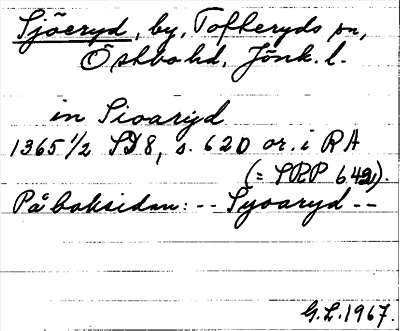 Sjöeryd, by, Tofteryds sn,
Östbo hd, Jönk. l.
in Sioaryd
1365 1/2 SD 8, s. 620 or. i RA
(= SRP 642).
På baksidan: -- Syoaryd --
G.L. 1967.